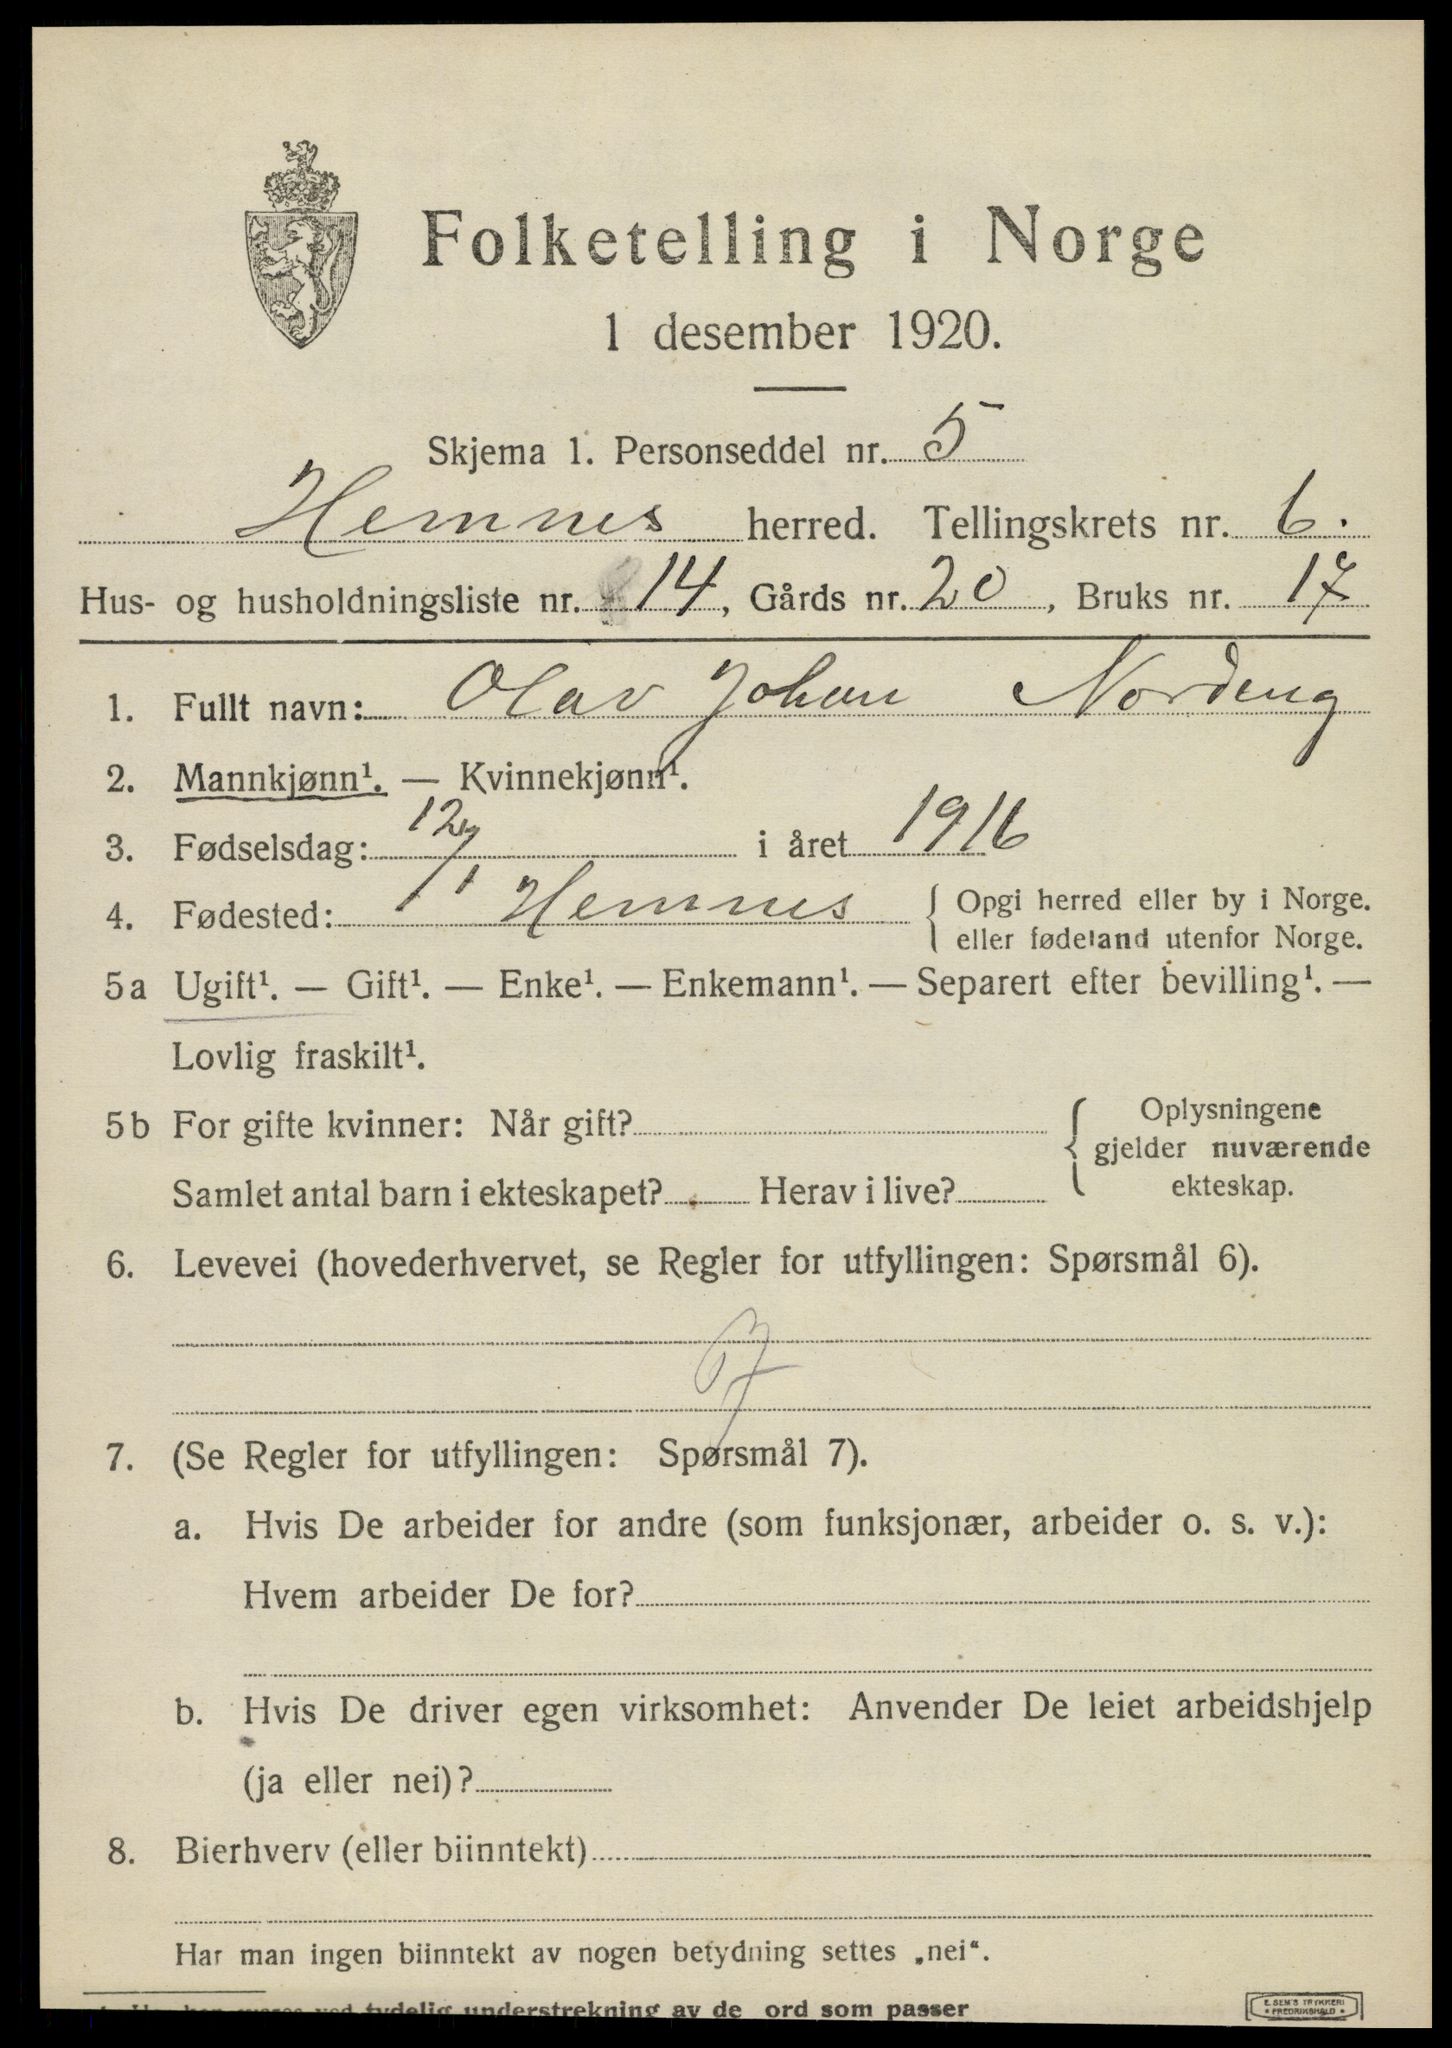 Folketelling i Norge
1 desember 1920.
Skjema 1. Personseddel nr. 5
Hemnes herred. Tellingskrets nr. 6.
Hus- og husholdningsliste nr. 14, Gårds nr. 20, Bruks nr. 17
1. Fullt navn: Olav Johan Nordeng
2. Mannkjønn¹. — Kvinnekjønn¹.
3. Fødselsdag: 12/1 i året 1916
4. Fødested: Hemnes { Opgi herred eller by i Norge.
eller fødeland utenfor Norge.
5a Ugift¹. — Gift¹. — Enke¹. — Enkemann¹. — Separert efter bevilling¹. —
Lovlig fraskilt¹.
5b For gifte kvinner: Når gift? { Oplysningene
gjelder nuværende
Samlet antal barn i ekteskapet? Herav i live? ekteskap.
6. Levevei (hovederhvervet, se Regler for utfyllingen: Spørsmål 6).
7. (Se Regler for utfyllingen: Spørsmål 7).
a. Hvis De arbeider for andre (som funksjonær, arbeider o. s. v.):
Hvem arbeider De for?
b. Hvis De driver egen virksomhet: Anvender De leiet arbeidshjelp
(ja eller nei)?
8. Bierhverv (eller biinntekt)
Har man ingen biinntekt av nogen betydning settes „nei“.
tydelig understrekning av de ord som passer
E. SEM'S TRYKKERI
FREDRIKSHALD